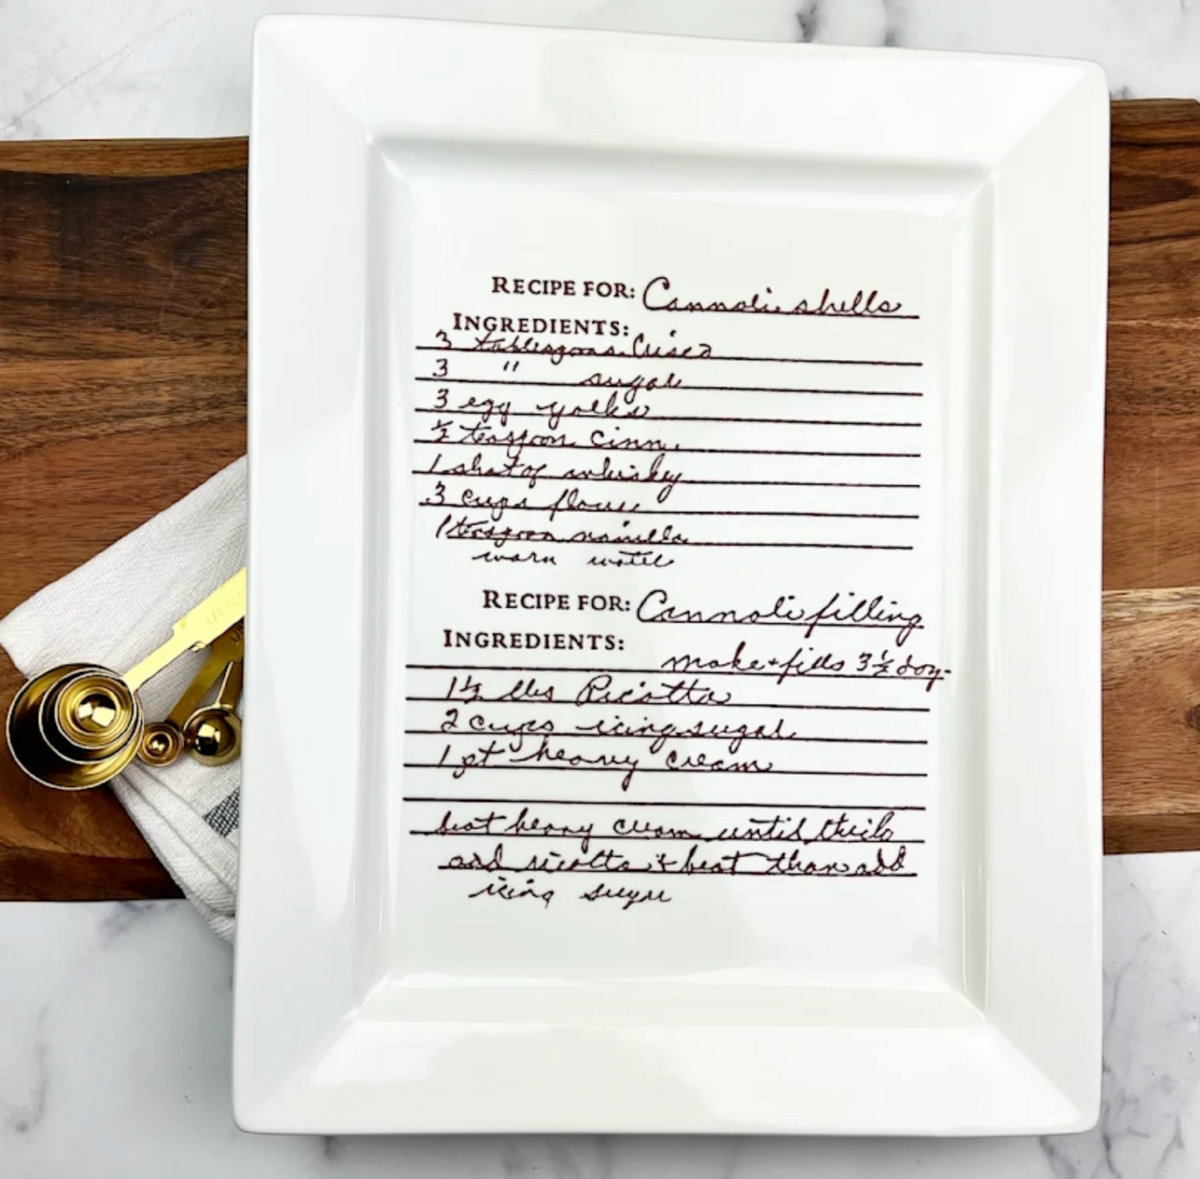 RECIPE FOR: Cannoli shells
INGREDIENTS:
3 tablespoons Crisco
3 " sugar
3 egg yolks
½ teaspoon cinn.
1 shot of whiskey
3 cups flour
1 teaspoon vanilla
warm water
RECIPE FOR: Cannoli filling
INGREDIENTS:
make + fills 3½ doz-
1½ lbs Ricotta
2 cups icing sugar
1 pt heavy cream
beat heavy cream until thick
add ricotta & beat than add
icing sugar